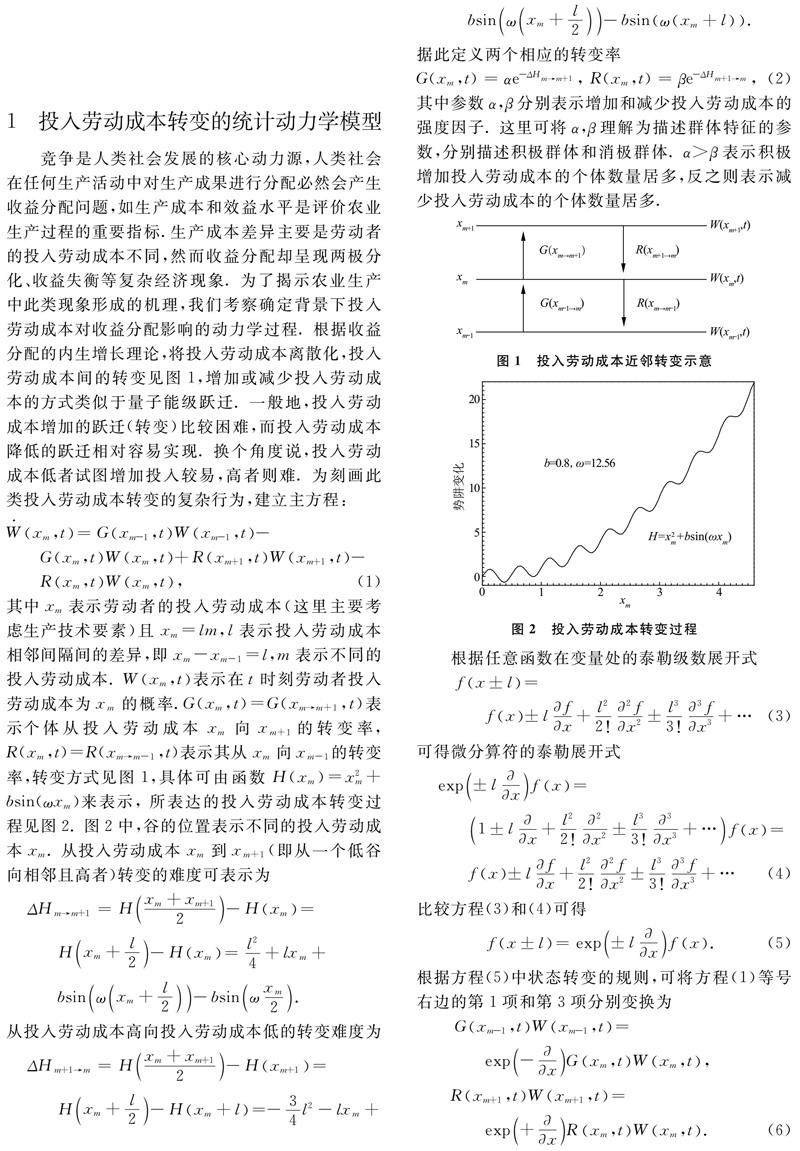 1 投入劳动成本转变的统计动力学模型
竞争是人类社会发展的核心动力源,人类社会
在任何生产活动中对生产成果进行分配必然会产生
收益分配问题,如生产成本和效益水平是评价农业
生产过程的重要指标.生产成本差异主要是劳动者
的投入劳动成本不同,然而收益分配却呈现两极分
化、收益失衡等复杂经济现象. 为了揭示农业生产
中此类现象形成的机理,我们考察确定背景下投入
劳动成本对收益分配影响的动力学过程. 根据收益
分配的内生增长理论,将投入劳动成本离散化,投入
劳动成本间的转变见图 1,增加或减少投入劳动成
本的方式类似于量子能级跃迁. 一般地,投入劳动
成本增加的跃迁(转变)比较困难,而投入劳动成本
降低的跃迁相对容易实现. 换个角度说,投入劳动
成本低者试图增加投入较易,高者则难. 为刻画此
类投入劳动成本转变的复杂行为,建立主方程:
Ẇ(x_m,t)=G(x_{m-1},t)W(x_{m-1},t)-
G(x_m,t)W(x_m,t)+R(x_{m+1},t)W(x_{m+1},t)-
R(x_m,t)W(x_m,t), (1)
其中 x_m 表示劳动者的投入劳动成本(这里主要考
虑生产技术要素)且 x_m=lm,l 表示投入劳动成本
相邻间隔间的差异,即 x_m-x_{m-1}=l,m 表示不同的
投入劳动成本. W(x_m,t)表示在 t 时刻劳动者投入
劳动成本为 x_m 的概率.G(x_m,t)=G(x_{m→m+1},t)表
示个体从投入劳动成本 x_m 向 x_{m+1} 的转变率,
R(x_m,t)=R(x_{m→m-1},t)表示其从 x_m 向 x_{m-1}的转变
率,转变方式见图 1,具体可由函数 H(x_m)=x_m^2+
bsin(ωx_m)来表示, 所表达的投入劳动成本转变过
程见图 2. 图 2 中,谷的位置表示不同的投入劳动成
本 x_m. 从投入劳动成本 x_m 到 x_{m+1}(即从一个低谷
向相邻且高者)转变的难度可表示为
ΔH_{m→m+1} = H((x_m+x_{m+1})/2)-H(x_m)=
H(x_m+l/2)-H(x_m)=l^2/4+lx_m+
bsin(ω(x_m+l/2))-bsin(ω x_m/2).
从投入劳动成本高向投入劳动成本低的转变难度为
ΔH_{m+1→m} = H((x_m+x_{m+1})/2)-H(x_{m+1})=
H(x_m+l/2)-H(x_m+l)=-3/4 l^2-lx_m+
bsin(ω(x_m+l/2))-bsin(ω(x_m+l)).
据此定义两个相应的转变率
G(x_m,t)=αe^{-ΔH_{m→m+1}}, R(x_m,t)=βe^{-ΔH_{m+1→m}}, (2)
其中参数 α,β 分别表示增加和减少投入劳动成本的
强度因子. 这里可将 α,β 理解为描述群体特征的参
数,分别描述积极群体和消极群体. α>β 表示积极
增加投入劳动成本的个体数量居多,反之则表示减
少投入劳动成本的个体数量居多.
x_{m+1} W(x_{m+1},t)
G(x_{m→m+1}) R(x_{m+1→m})
x_m W(x_m,t)
G(x_{m-1→m}) R(x_{m→m-1})
x_{m-1} W(x_{m-1},t)
图 1 投入劳动成本近邻转变示意
20
15
10
5
0
势阱变化
b=0.8, ω=12.56
H=x_m^2+bsin(ωx_m)
0 1 2 3 4
x_m
图 2 投入劳动成本转变过程
根据任意函数在变量处的泰勒级数展开式
f(x±l)=
f(x)±l ∂f/∂x+l^2/2! ∂^2f/∂x^2±l^3/3! ∂^3f/∂x^3+⋯ (3)
可得微分算符的泰勒展开式
exp(±l ∂/∂x)f(x)=
(1±l ∂/∂x+l^2/2! ∂^2/∂x^2±l^3/3! ∂^3/∂x^3+⋯)f(x)=
f(x)±l ∂f/∂x+l^2/2! ∂^2f/∂x^2±l^3/3! ∂^3f/∂x^3+⋯ (4)
比较方程(3)和(4)可得
f(x±l)=exp(±l ∂/∂x)f(x). (5)
根据方程(5)中状态转变的规则,可将方程(1)等号
右边的第 1 项和第 3 项分别变换为
G(x_{m-1},t)W(x_{m-1},t)=
exp(-∂/∂x)G(x_m,t)W(x_m,t),
R(x_{m+1},t)W(x_{m+1},t)=
exp(+∂/∂x)R(x_m,t)W(x_m,t). (6)